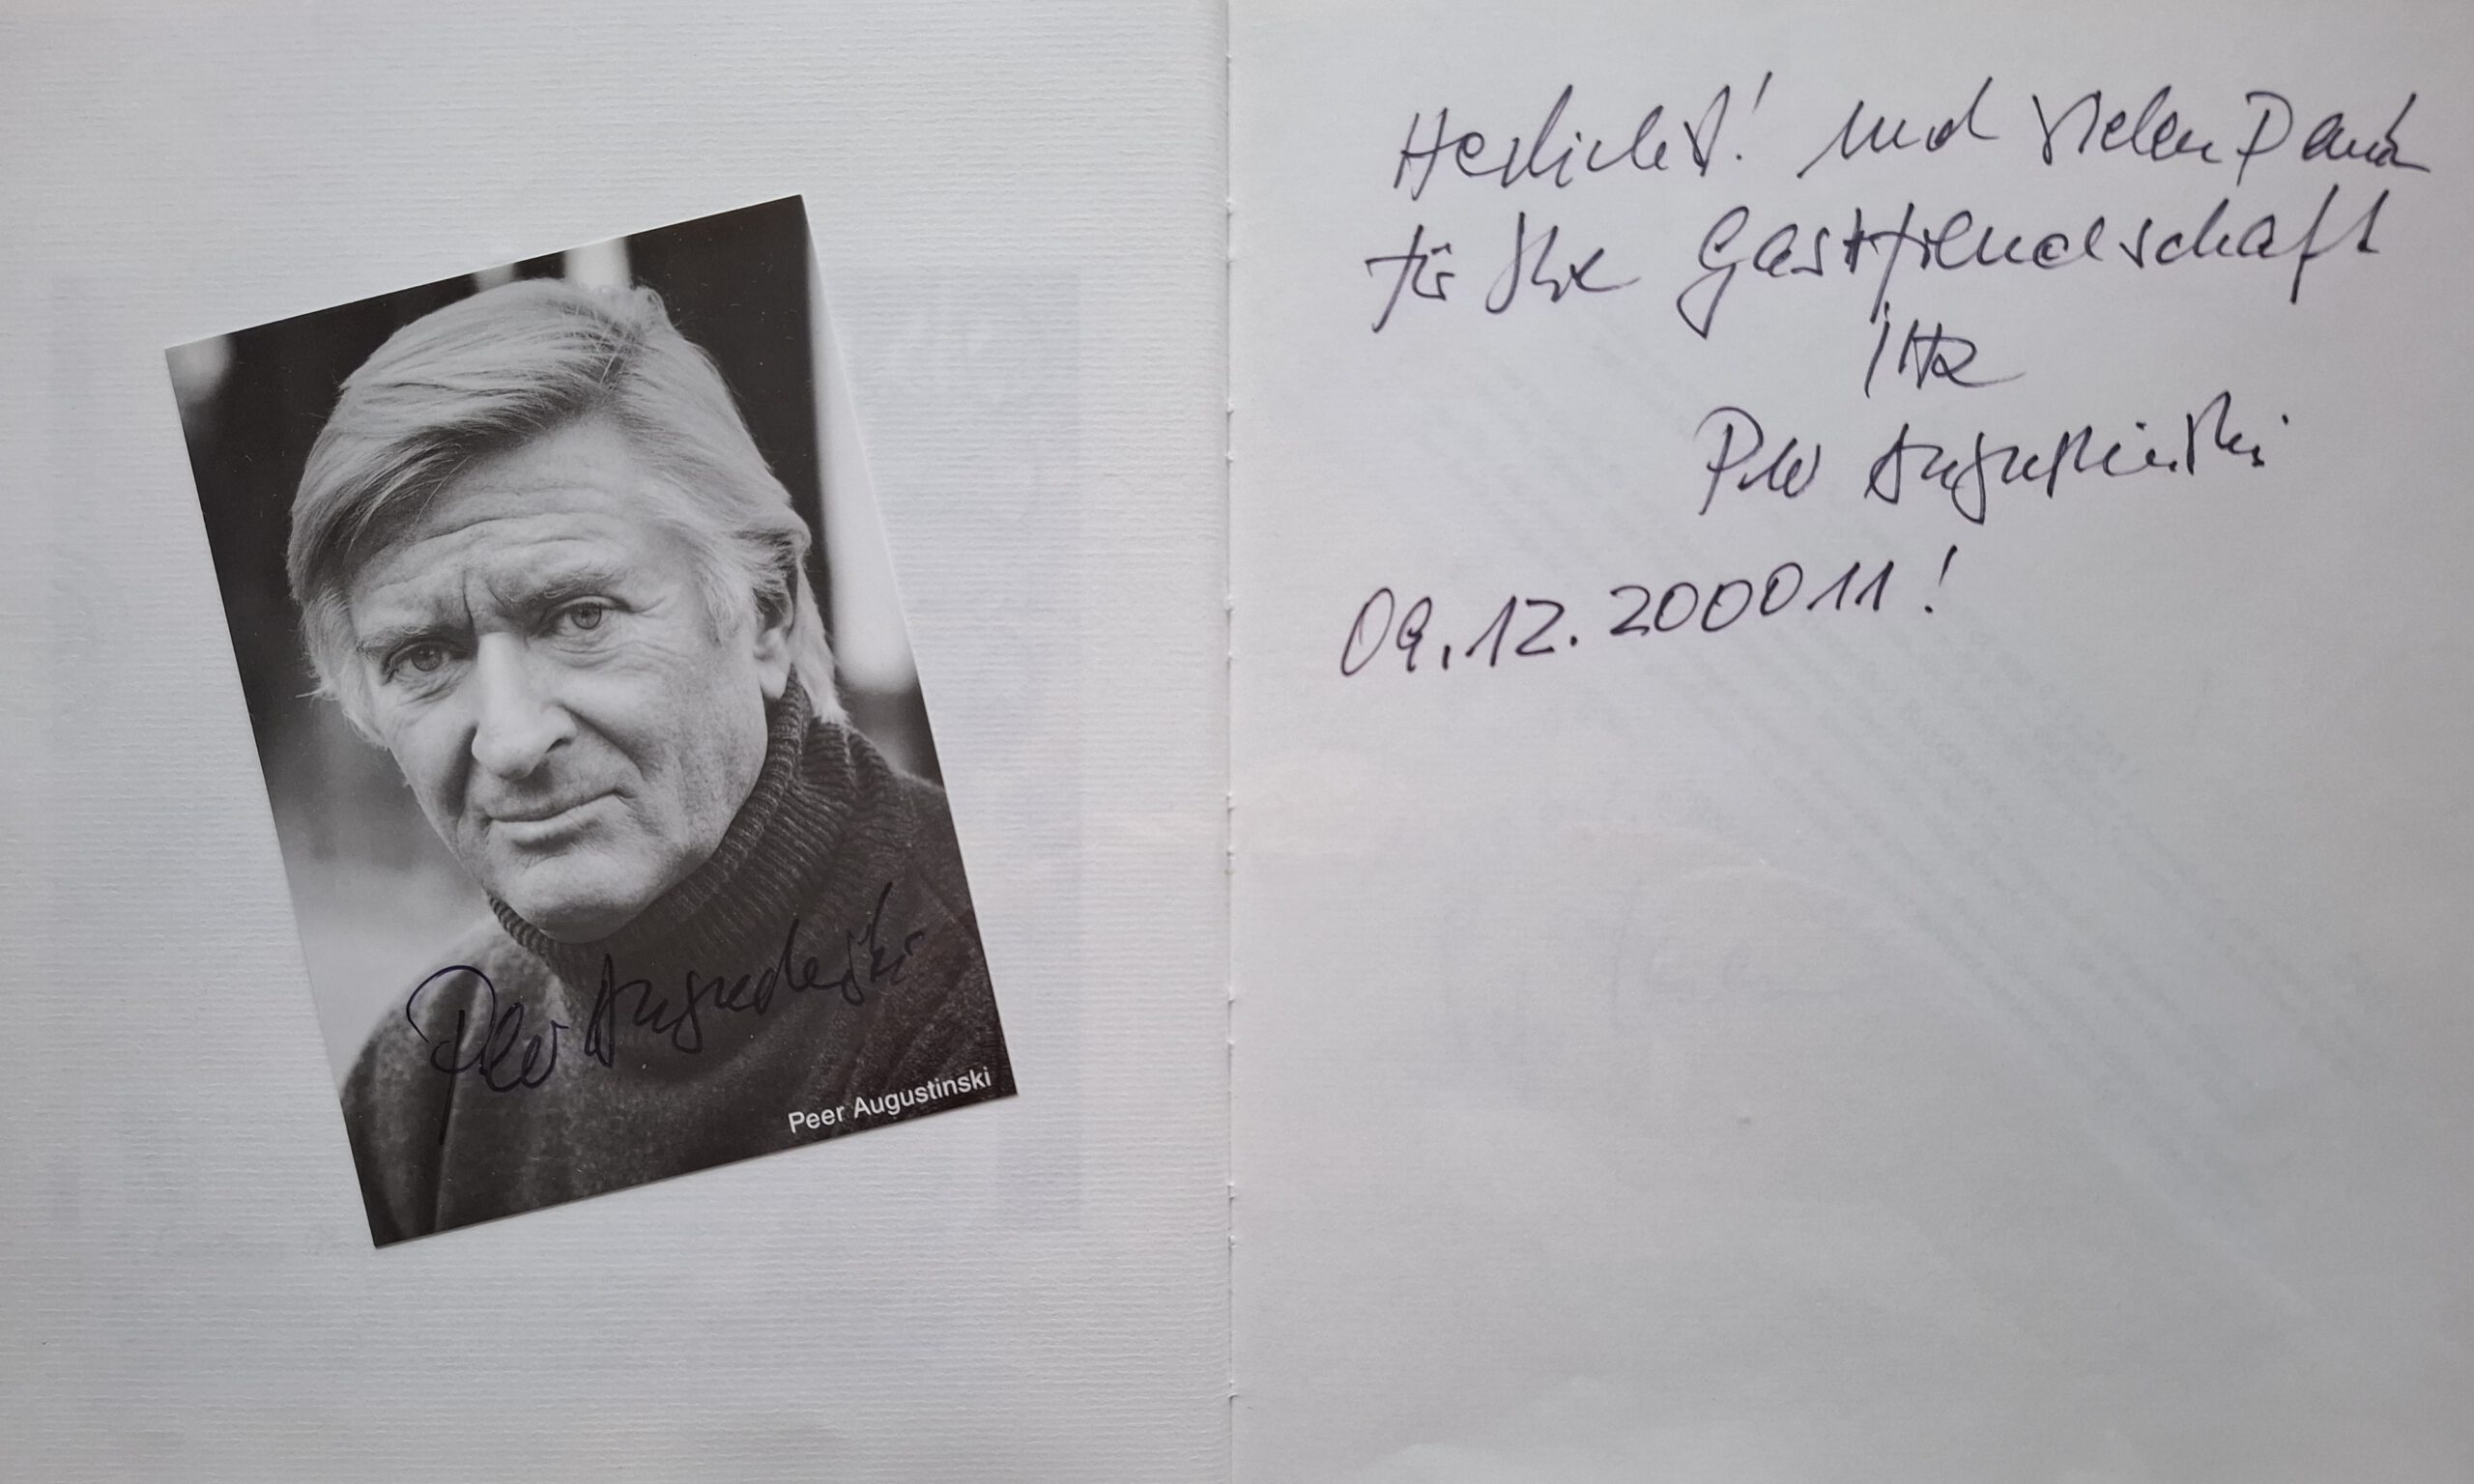 Peer Augustinski
Peer Augustinski
Herzlichst! und vielen Dank
für Ihre Gastfreundschaft
Ihr
Peer Augustinski
09.12.200011!